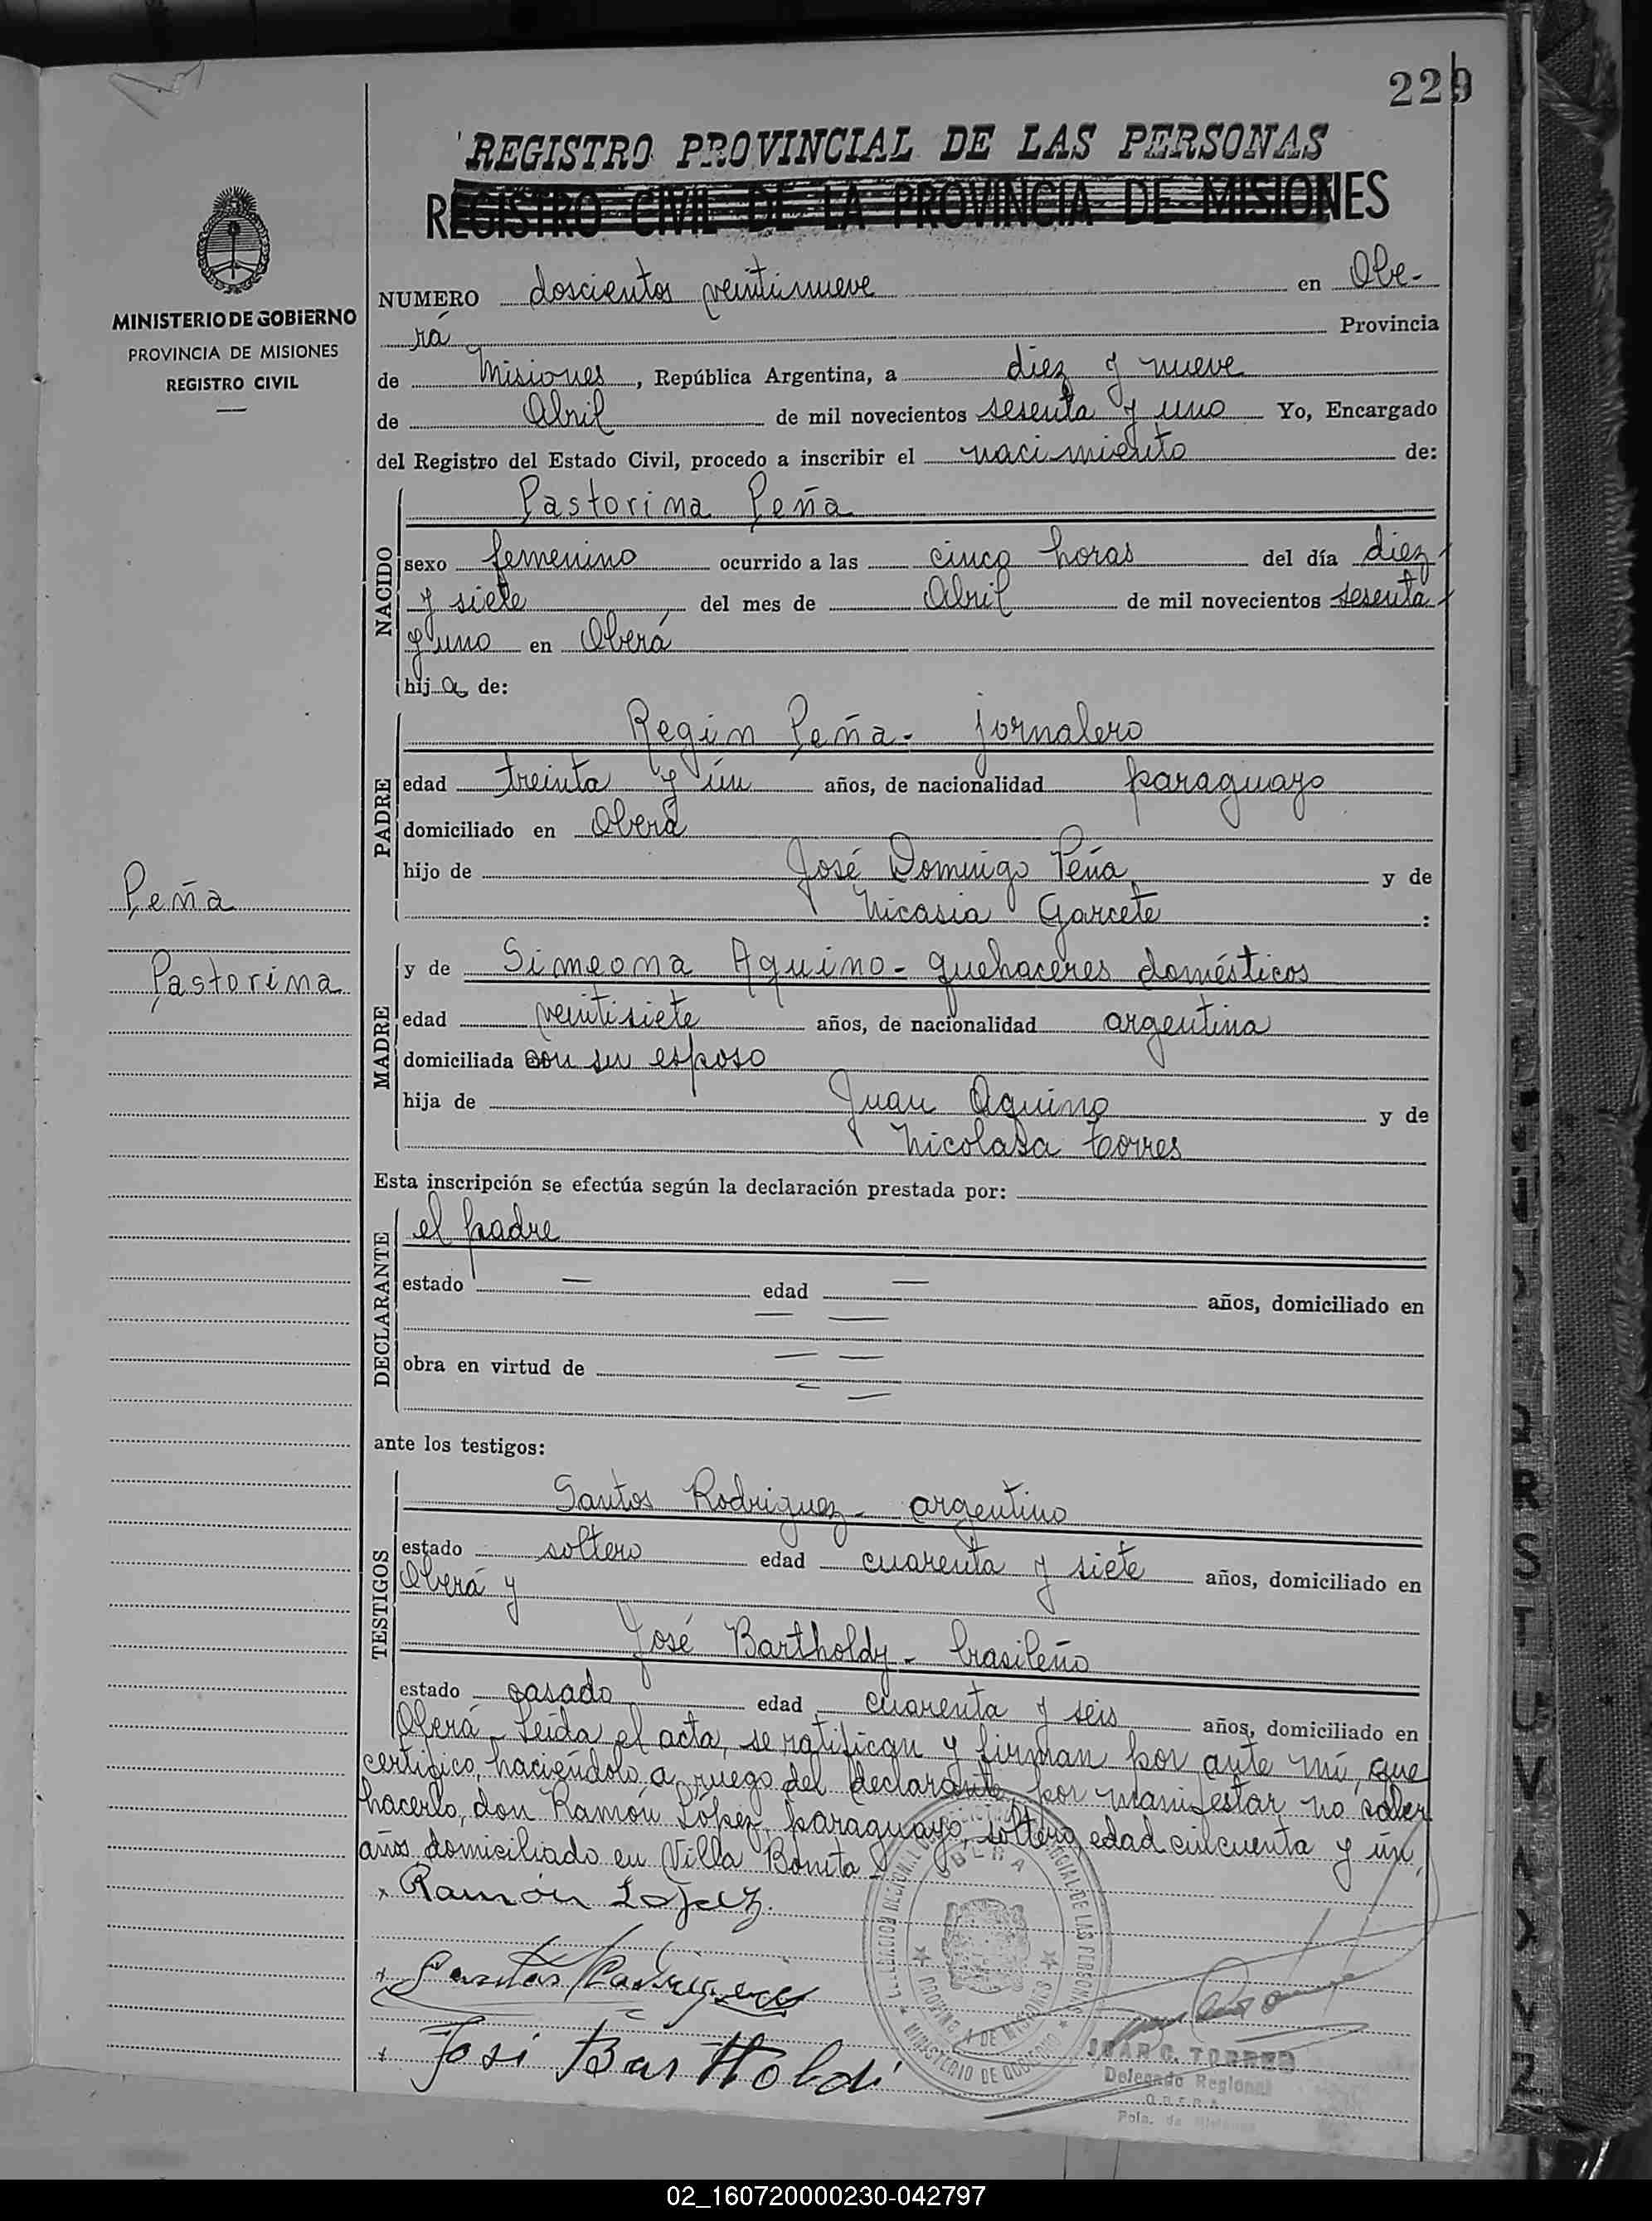 229
REGISTRO PROVINCIAL DE LAS PERSONAS
REGISTRO CIVIL DE LA PROVINCIA DE MISIONES
MINISTERIO DE GOBIERNO
PROVINCIA DE MISIONES
REGISTRO CIVIL
NUMERO doscientos veintinueve en Obe-
rá Provincia
de Misiones, República Argentina, a diez y nueve
de Abril de mil novecientos sesenta y uno Yo, Encargado
del Registro del Estado Civil, procedo a inscribir el nacimiento de:
NACIDO
Pastorina Peña
sexo femenino ocurrido a las cinco horas del día diez
y siete del mes de Abril de mil novecientos sesenta
y uno en Oberá
hija de:
PADRE
Regin Peña - jornalero
edad treinta y ún años, de nacionalidad paraguayo
domiciliado en Oberá
hijo de José Domingo Peña y de
Nicasia Garcete :
Peña
Pastorina
MADRE
y de Simeona Aquino - quehaceres domésticos
edad veintisiete años, de nacionalidad argentina
domiciliada con su esposo
hija de Juan Aquino y de
Nicolasa Torres
Esta inscripción se efectúa según la declaración prestada por:
DECLARANTE
el padre
estado — edad — años, domiciliado en
— —
obra en virtud de — —
— —
ante los testigos:
TESTIGOS
Santos Rodriguez - argentino
estado soltero edad cuarenta y siete años, domiciliado en
Oberá y
José Bartholdy - brasileño
estado casado edad cuarenta y seis años, domiciliado en
Oberá - Leída el acta, se ratifican y firman por ante mí, que
certifico, haciéndolo a ruego del declarante, por manifestar no saber
hacerlo, don Ramón López, paraguayo, soltero, edad cincuenta y ún
años domiciliado en Villa Bonita
Ramón Lopez.
Santos Rodriguez
Josi Bartholdi
OBERA
PROVINCIA DE MISIONES
MINISTERIO DE GOBIERNO
JUAN C. TORRES
Delegado Regional
OBERA
Pcia. de Misiones
R
S
T
U
V
Z
02_160720000230-042797